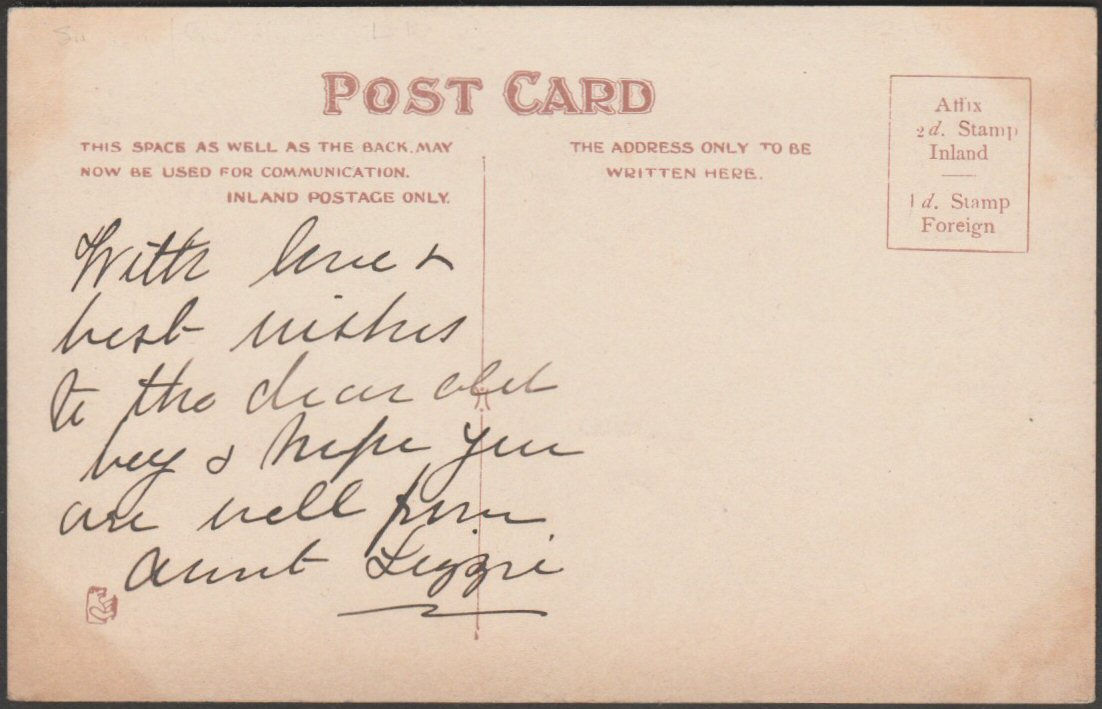 POST CARD
THIS SPACE AS WELL AS THE BACK, MAY
NOW BE USED FOR COMMUNICATION.
INLAND POSTAGE ONLY.
THE ADDRESS ONLY TO BE
WRITTEN HERE.
Affix
½d. Stamp
Inland
1d. Stamp
Foreign
With love &
best wishes
to the dear old
boy & hope you
are well from
Aunt Lizzie